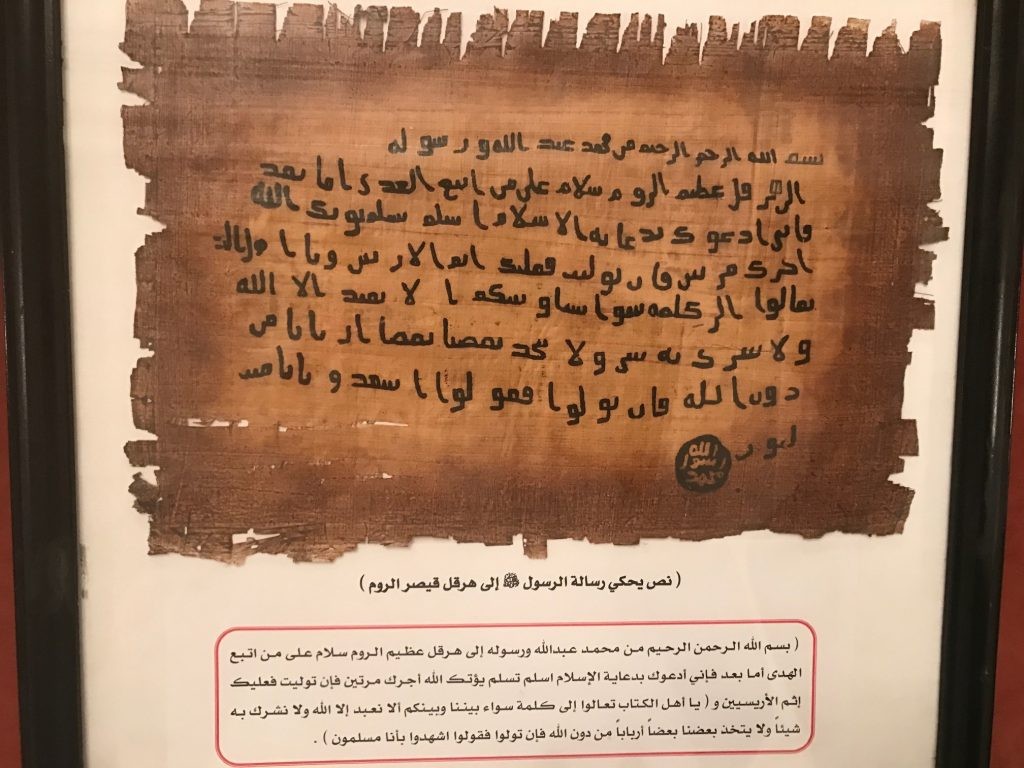 بسم الله الرحمن الرحيم من محمد عبد الله و ر سو له
الى هر قل عظيم الرو م سلام على من اتبع الهدى اما بعد
فانى ادعو ك بدعا يه الا سلام ا سلم تسلم يوتك الله
اجرك مر تين فان توليت فعليك اثم الاريسين ويا ا هل الكتاب
تعالوا الى كلمه سوا بيننا و بينكم ا لا نعبد الا الله
ولا نشرك به شيا ولا يتخذ بعضنا بعضا اربابا من
دون الله فان تو لوا فقو لوا ا شهد و ا بانا مسلمون
الله
رسول
محمد
( نص يحكي رسالة الرسول ﷺ إلى هرقل قيصر الروم )
( بسم الله الرحمن الرحيم من محمد عبدالله ورسوله إلى هرقل عظيم الروم سلام على من اتبع
الهدى أما بعد فإني أدعوك بدعاية الإسلام اسلم تسلم يؤتك الله أجرك مرتين فإن توليت فعليك
إثم الأريسيين و ( يا أهل الكتاب تعالوا إلى كلمة سواء بيننا وبينكم ألا نعبد إلا الله ولا نشرك به
شيئاً ولا يتخذ بعضنا بعضاً أرباباً من دون الله فإن تولوا فقولوا اشهدوا بأنا مسلمون ) .